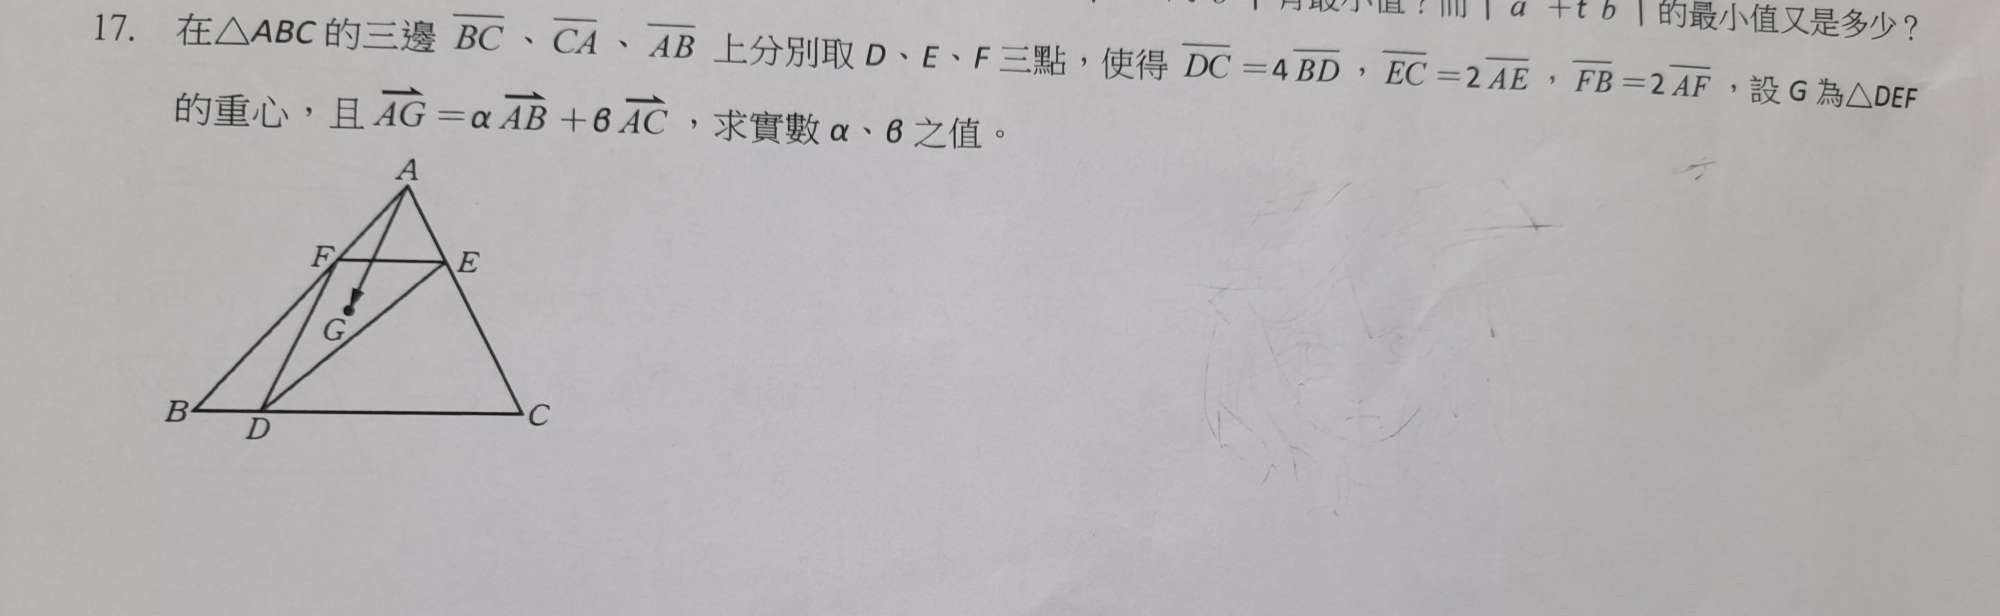 有最小值？而 | a + t b | 的最小值又是多少？
17. 在△ABC 的三邊 BC、CA、AB 上分別取 D、E、F 三點，使得 DC =4 BD，EC =2 AE，FB =2 AF，設 G 為△DEF
的重心，且 AG =α AB +β AC，求實數 α、β 之值。
A
F
E
G
B
D
C